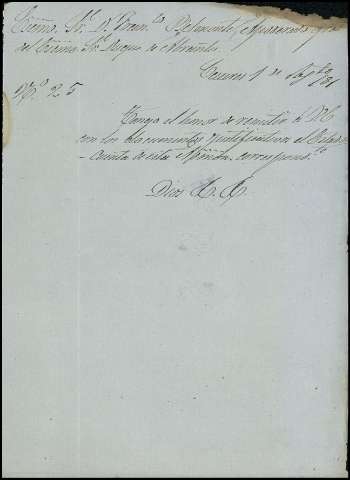 Excmo. Sr. D. Fran.co Belmonte, Apoderado gral
del Excmo. Sr. Duque de Abrantes
Caceres 1º de Agto /81
Nº. 25
Tengo el honor de remitir á VE
con los documentos justificativos el Estado
-cuenta de esta Admon. correspond.te
Dios &. &.